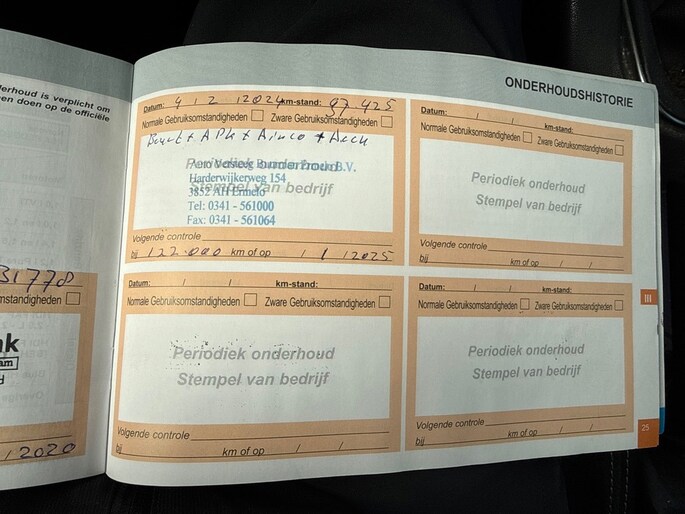 erhoud is verplicht om
en doen op de officiële
31778
nstandigheden)
/ 2020
ONDERHOUDSHISTORIE
Datum: 4 / 2 / 2024 km-stand: 97.425
Normale Gebruiksomstandigheden Zware Gebruiksomstandigheden
Beurt + APK + Airco +
Periodiek onderhoud
Stempel van bedrijf
Auto Versteeg Ermelo B.V.
Harderwijkerweg 154
3852 AH Ermelo
Tel: 0341 - 561000
Fax: 0341 - 561064
Volgende controle
bij 122.000 km of op / 1 / 2025
Datum: / / km-stand:
Normale Gebruiksomstandigheden Zware Gebruiksomstandigheden
Periodiek onderhoud
Stempel van bedrijf
Volgende controle
bij km of op / /
Datum: / / km-stand:
Normale Gebruiksomstandigheden Zware Gebruiksomstandigheden
Periodiek onderhoud
Stempel van bedrijf
Volgende controle
bij km of op / /
Datum: / / km-stand:
Normale Gebruiksomstandigheden Zware Gebruiksomstandigheden
Periodiek onderhoud
Stempel van bedrijf
Volgende controle
bij km of op / /
III
25